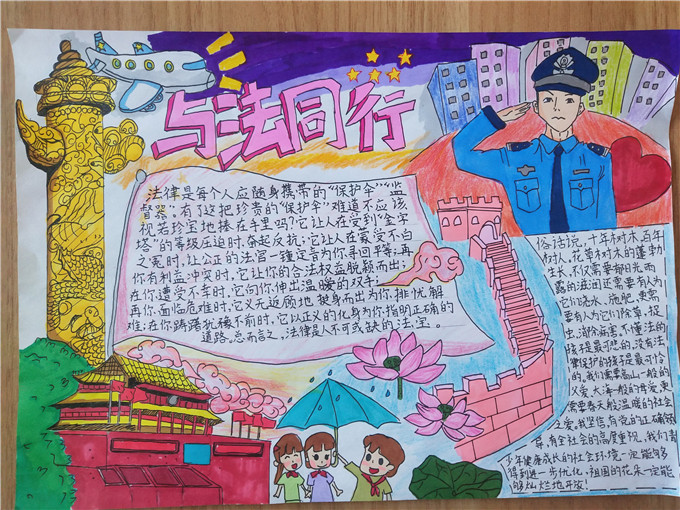 与法同行
法律是每个人应随身携带的“保护伞”“监
督器”,有了这把珍贵的“保护伞”难道不应该
视若珍宝地捧在手里吗?它让人在受到“金字
塔”的等级压迫时,奋起反抗;它让人在蒙受不白
之冤时,让公正的法官一锤定音为你寻回平等;再
你有利益冲突时,它让你的合法权益脱颖而出;
在你遭受不幸时,它向你伸出温暖的双手;
再你面临危难时,它义无返顾地挺身而出为你排忧解
难;在你踌躇犹豫不前时,它以正义的化身为你指明正确的
道路。总而言之,法律是人不可或缺的法宝。
俗话说,十年树木,百年
树人。花草树木的蓬勃
生长,不仅需要阳光雨
露的滋润还需要有人为
它们浇水、施肥,更需
要有人为它们除草、捉
虫、消除病害,不懂法的
孩子是最可悲的,没有法
律保护的孩子是最可怜
的,我们需要高山一般的
父爱,大海一般的母爱,更
需要春天般温暖的社会
之爱,我坚信,有党的正确领
导,有全社会的高度重视,我们青
少年健康成长的社会环境一定能够
得到进一步优化,祖国的花朵一定能
够灿烂地开放!